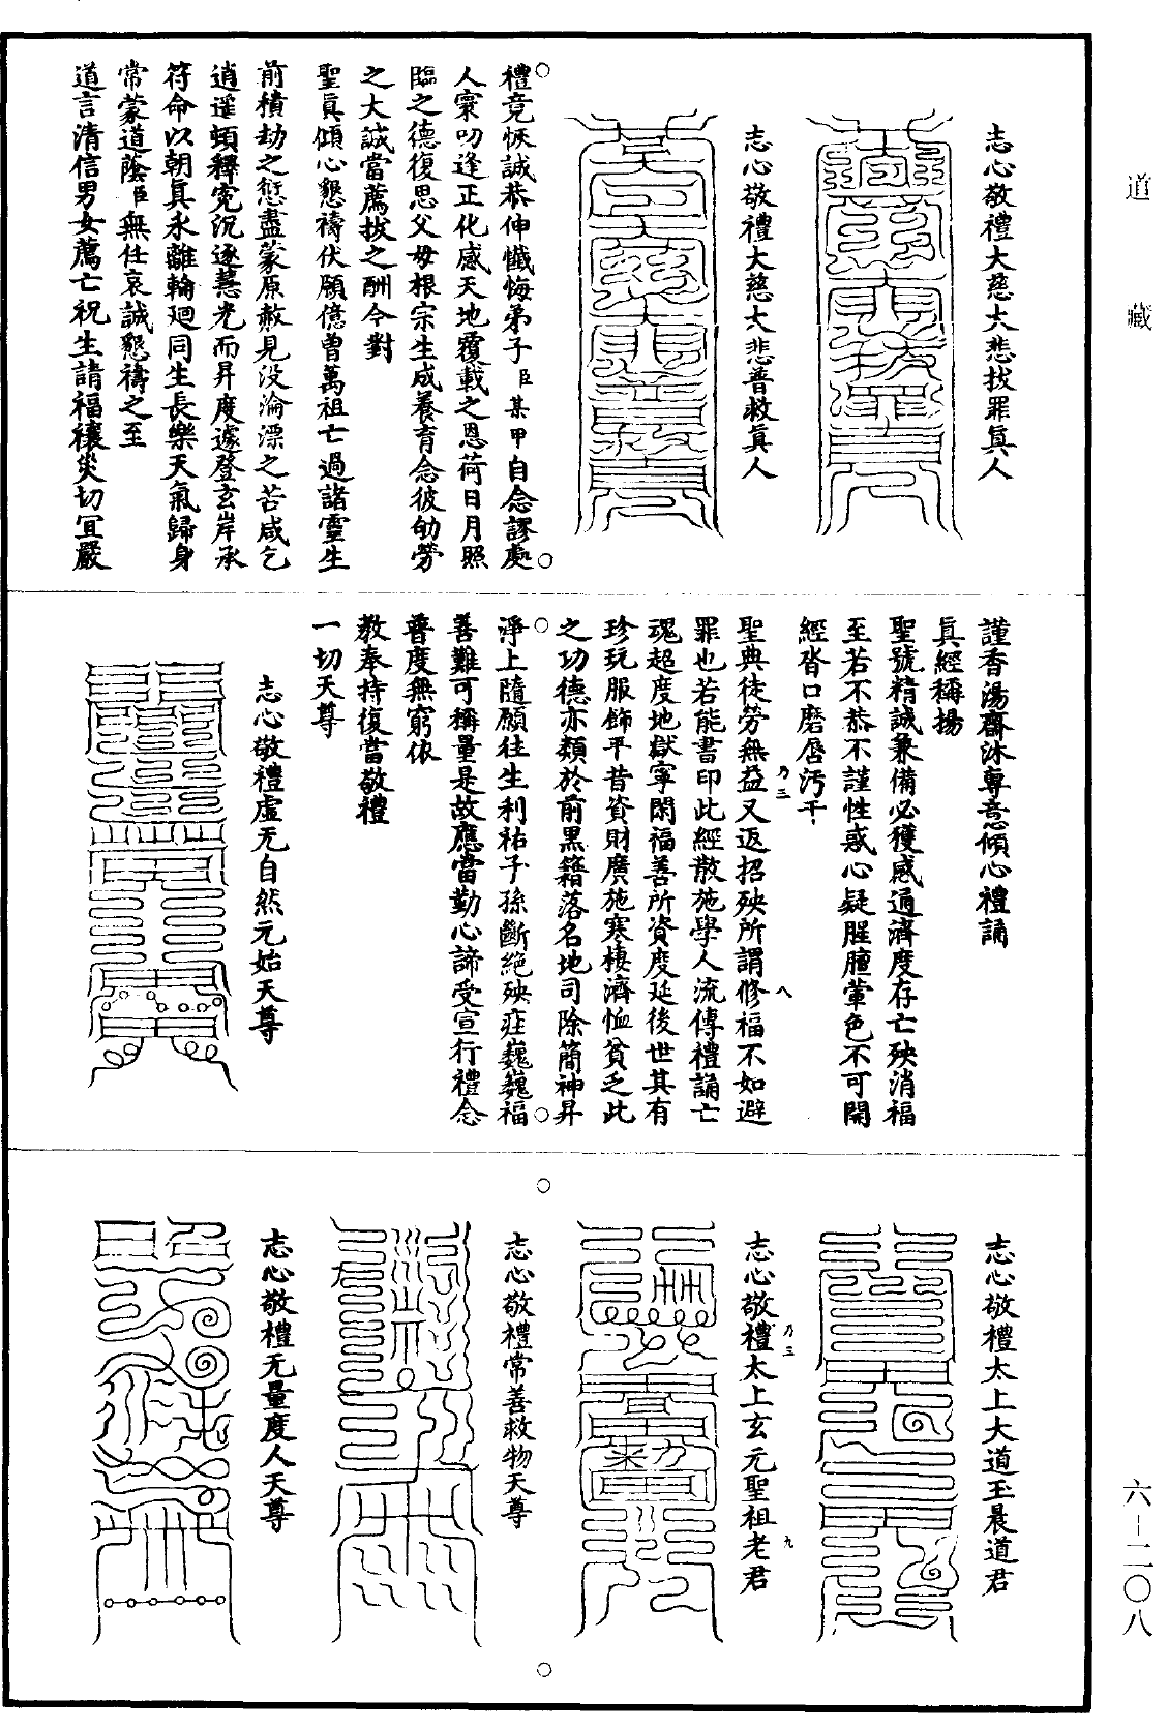 道藏
志心敬禮大慈大悲拔罪真人
志心敬禮大慈大悲普救真人
禮竟恢誠恭伸懺悔弟子臣某甲自念謬處
人寰叨逢正化感天地覆載之恩荷日月照
臨之德復思父母根宗生成養育念彼劬勞
之大誠當薦拔之酬今對
聖真傾心懇禱伏願億曾萬祖亡過諸靈生
前積劫之愆盡蒙原赦見没淪漂之苦咸乞
逍遥頓釋寃沉逐慧光而昇度遽登玄岸承
符命以朝真永離輪迴同生長樂天氣歸身
常蒙道蔭臣無任哀誠懇禱之至
道言清信男女薦亡祝生請福禳災切宜嚴
謹香湯齋沐專意傾心禮誦
真經稱揚
聖號精誠兼備必獲感通濟度存亡殃消福
至若不恭不謹性惑心疑腥膻葷色不可開
經沓口磨唇汚干
聖典徒勞無益又返招殃所謂修福不如避
罪也若能書印此經散施學人流傳禮誦亡
魂超度地獄寧閑福善所資度延後世其有
珍玩服飾平昔資財廣施寒棲濟恤貧乏此
之功德亦類於前黑籍落名地司除簡神昇
淨上隨願往生利祐子孫斷絶殃疰巍巍福
善難可稱量是故應當勤心諦受宣行禮念
普度無窮依
教奉持復當敬禮
一切天尊
志心敬禮虛无自然元始天尊
乃三
八
志心敬禮太上大道玉晨道君
志心敬禮太上玄元聖祖老君
乃三
九
志心敬禮常善救物天尊
志心敬禮无量度人天尊
六-二〇八